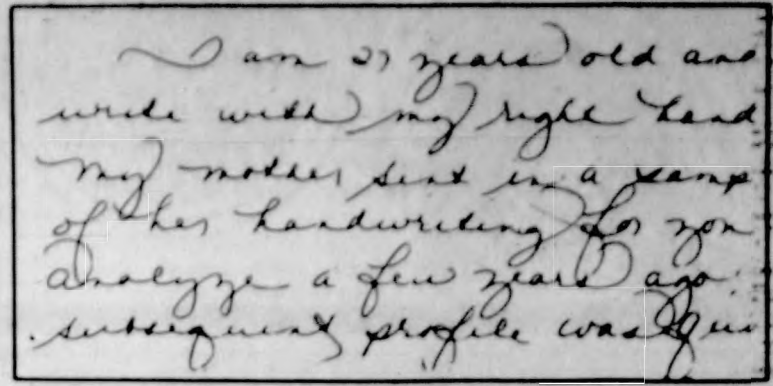 I am 27 years old and
write with my right hand
My mother sent in a samp
of her handwriting for you
analyze a few years ago.
subsequent profile was qui